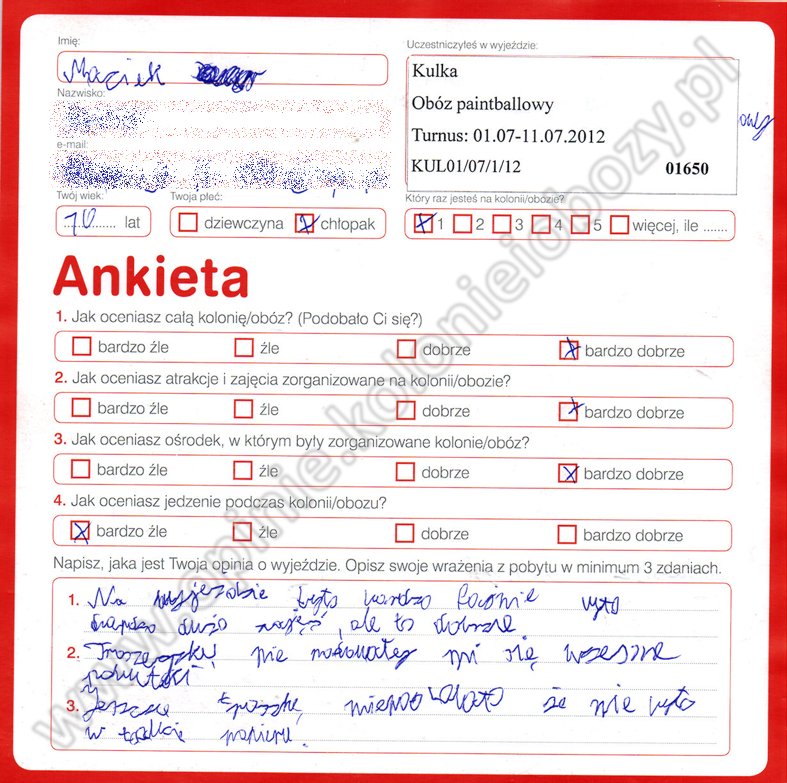 Imię:
Maciek
Nazwisko:
e-mail:
Uczestniczyłeś w wyjeździe:
Kulka
Obóz paintballowy
Turnus: 01.07-11.07.2012
KUL01/07/1/12 01650
Twój wiek:
10 lat
Twoja płeć:
dziewczyna chłopak
Który raz jesteś na kolonii/obozie?
1 2 3 4 5 więcej, ile .......
Ankieta
1. Jak oceniasz całą kolonię/obóz? (Podobało Ci się?)
bardzo źle źle dobrze bardzo dobrze
2. Jak oceniasz atrakcje i zajęcia zorganizowane na kolonii/obozie?
bardzo źle źle dobrze bardzo dobrze
3. Jak oceniasz ośrodek, w którym były zorganizowane kolonie/obóz?
bardzo źle źle dobrze bardzo dobrze
4. Jak oceniasz jedzenie podczas kolonii/obozu?
bardzo źle źle dobrze bardzo dobrze
Napisz, jaka jest Twoja opinia o wyjeździe. Opisz swoje wrażenia z pobytu w minimum 3 zdaniach.
1. Na wyjeździe było bardzo fajnie było
dużo zajęć, ale to dobrze
2. nie mi się wczesne
pobudki
3. Jeszcze że nie było
w papieru.
www.opinie.kolonieiobozy.pl